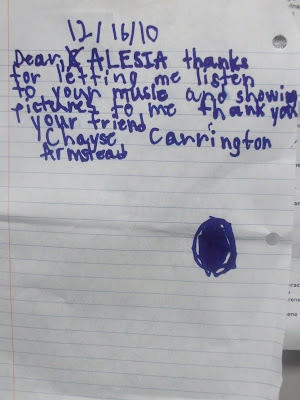 12/16/10
Dear, KALESIA thanks
for letting me listen
to your music and showing
pictures to me thank you
your friend
Chayse Carrington
Armstead